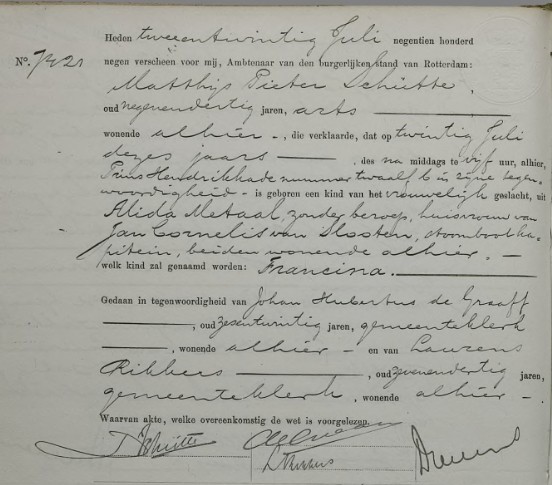 Heden tweeentwintig Juli negentien honderd
Nº. 7421
negen verscheen voor mij, Ambtenaar van den burgerlijken stand van Rotterdam:
Matthijs Pieter Schutte,
oud negenendertig jaren, arts
wonende alhier -, die verklaarde, dat op twintig Juli
dezes jaars, des na middags te vijf uur, alhier,
Prins Hendrikkade nummer twaalf b in zijne tegen-
woordigheid - is geboren een kind van het vrouwelijk geslacht, uit
Alida Metaal, zonder beroep, huisvrouw van
Jan Cornelis van Slooten, stoombootka-
pitein, beiden wonende alhier. -
welk kind zal genaamd worden: Francina.
Gedaan in tegenwoordigheid van Johan Hubertus de Graaff
, oud zesentwintig jaren, gemeenteklerk
, wonende alhier - en van Laurens
Ribbers, oud zevenendertig jaren,
gemeenteklerk, wonende alhier -.
Waarvan akte, welke overeenkomstig de wet is voorgelezen.
Schutte
LRibbers